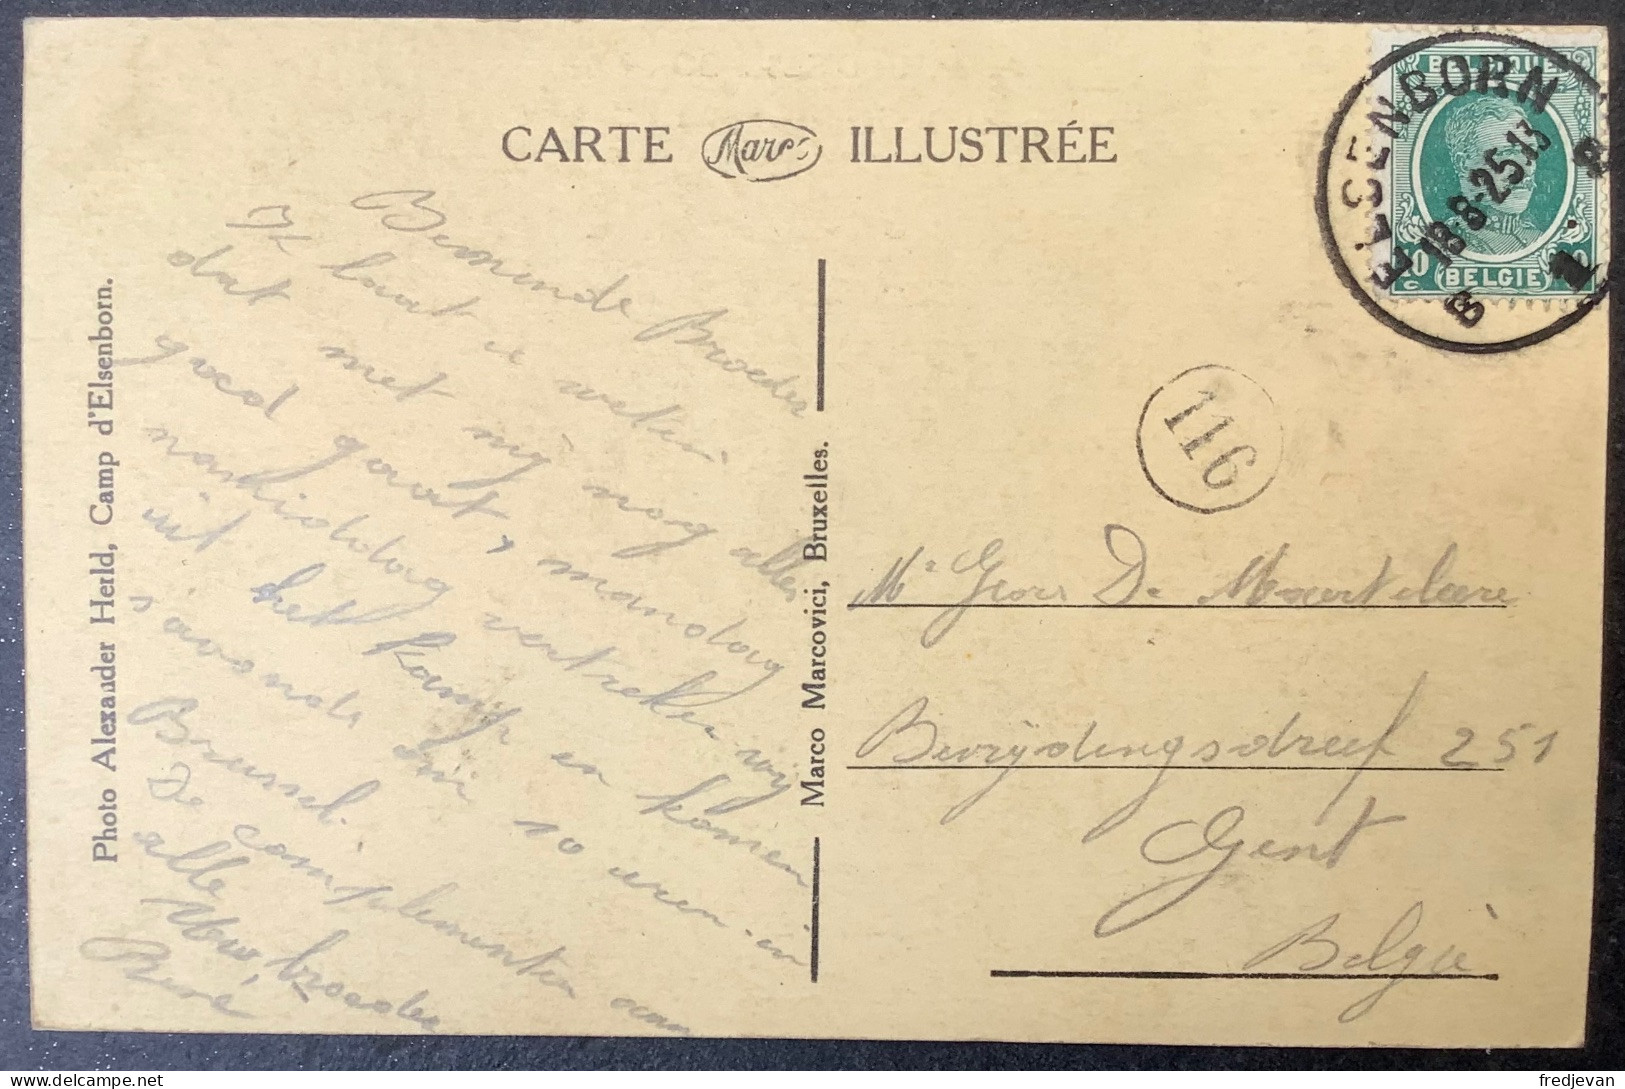 CARTE Marco ILLUSTRÉE
BELGIQUE
10 c BELGIE
ELSENBORN
18-8-25.13
B 1 B
116
Photo Alexander Herld, Camp d'Elsenborn.
Marco Marcovici, Bruxelles.
Beminde Broeder
Ik laat u weten
dat met mij nog alles
goed gaat, maandag
namiddag vertrekken wij
uit het kamp en komen
s'avonds om 10 uren in
Brussel.
De complimenten aan
alle,
Uw broeder
René
Mr Geors De Maertelaere
Bevrijdingsdreef 251
Gent
België
fredjevan